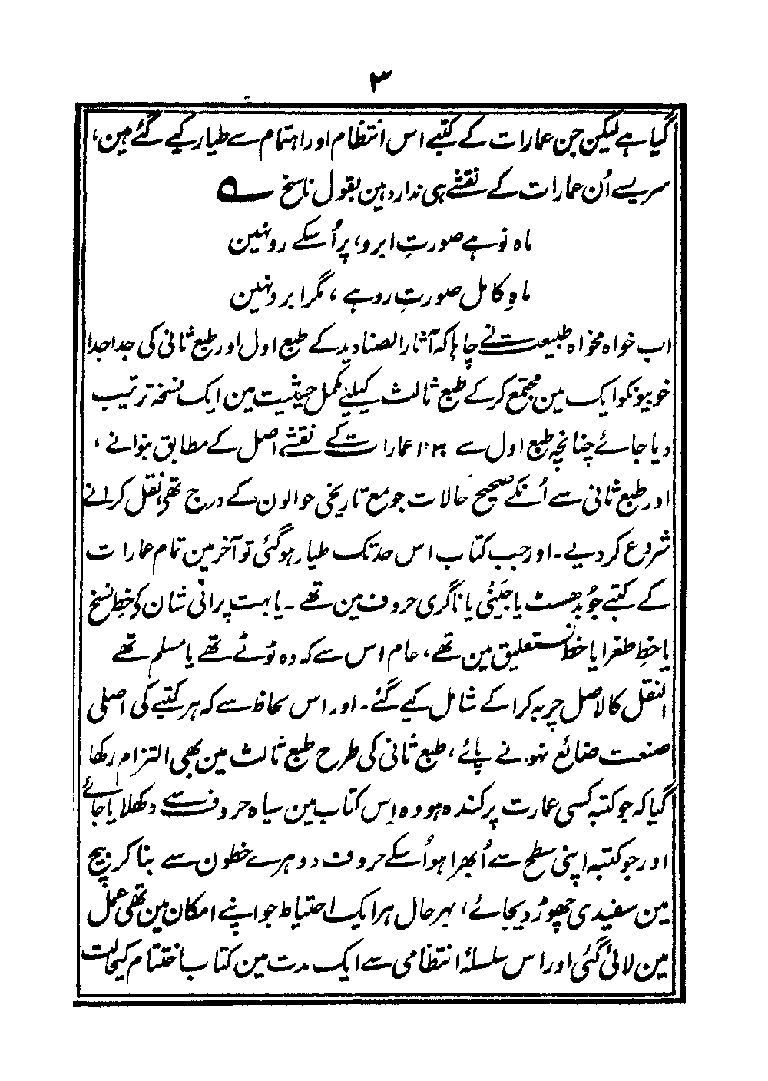 ۳
گیا ہے لیکن جن عمارات کے کتبے اس انتظام اور اہتمام سے طیار کیے گئے ہین،
سرے سے اُن عمارات کے نقشے ہی ندارد ہین بقول ناسخ ؎
ماہِ نو ہے صورتِ ابرو، پر اُسکے رو نہین
ماہِ کامل صورتِ رو ہے، مگر ابرو نہین
اب خواہ مخواہ طبیعت نے چاہا کہ آثار الصنادید کے طبع اول اور طبع ثانی کی جدا جدا
خوبیونکو ایک مین مجتمع کرکے طبع ثالث کیلئے مکمل حیثیت مین ایک نسخہ ترتیب
دیا جائے چنانچہ طبع اول سے عمارات کے نقشے اصل کے مطابق بنوائے،
اور طبع ثانی سے اُنکے صحیح حالات جو مع تاریخی حوالون کے درج تھے نقل کرانے
شروع کر دیے۔ اور جب کتاب اس حد تک طیار ہو گئی تو آخر مین تمام عمارات
کے کتبے جو بدہسٹ یا جینی یا ناگری حروف مین تھے۔ یا بہت پرانی شان کے خط نسخ
یا خطِ طغرا یا خط نستعلیق مین تھے، عام اس سے کہ وہ ٹوٹے تھے یا مسلم تھے
النقل کالاصل چربہ کرا کے شامل کیے گئے۔ اور اس لحاظ سے کہ ہر کتبے کی اصلی
صنعت ضائع نہونے پائے، طبع ثانی کی طرح طبع ثالث مین بھی التزام رکھا
گیا کہ جو کتبہ کسی عمارت پر کندہ ہو وہ اِس کتاب مین سیاہ حروف سے دکھلایا جائے
اور جو کتبہ اپنی سطح سے اُبھرا ہو اُسکے حروف دوہرے خطون سے بنا کر بیچ
مین سفیدی چھوڑ دیجائے، بہر حال ہر ایک احتیاط جو اپنے امکان مین تھی عمل
مین لائی گئی اور اس سلسلۂ انتظامی سے ایک مدت مین کتاب باختتام کیحالت